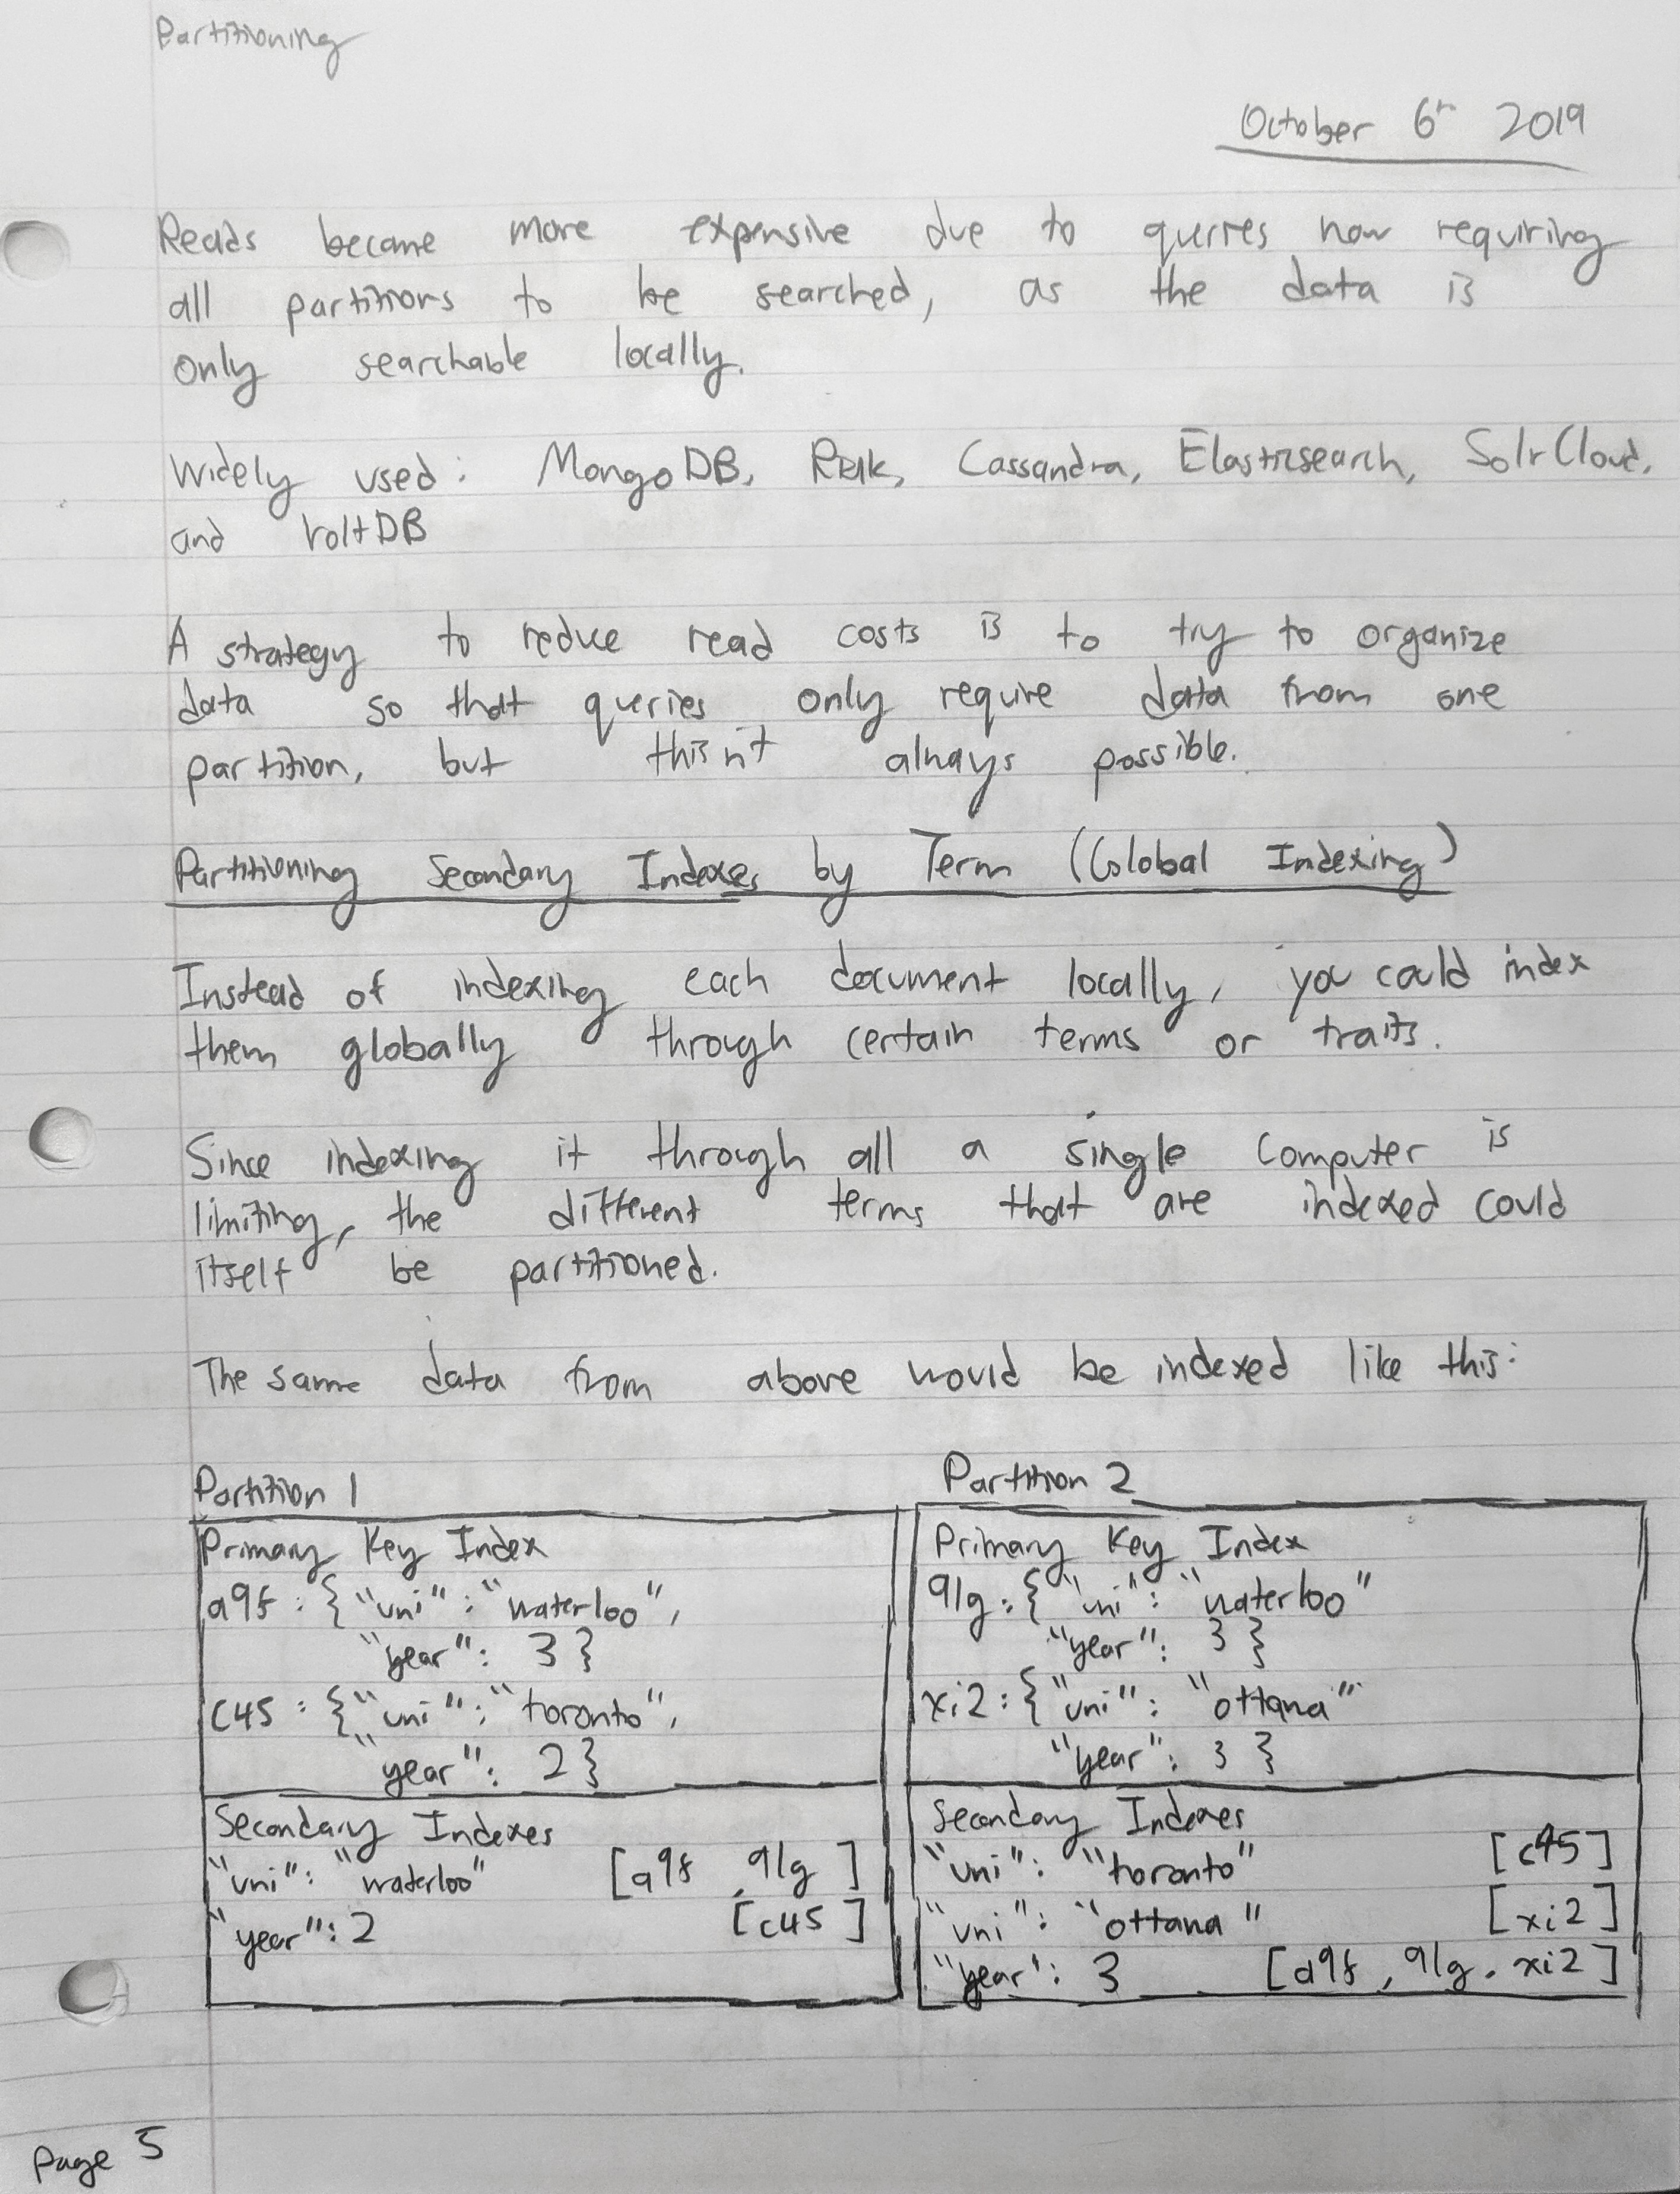 Partitioning
October 6th 2019
Reads became more expensive due to queries now requiring
all partitions to be searched, as the data is
only searchable locally.
Widely used: MongoDB, Riak, Cassandra, Elasticsearch, SolrCloud,
and VoltDB
A strategy to reduce read costs is to try to organize
data so that queries only require data from one
partition, but this n't always possible.
Partitioning Secondary Indexes by Term (Global Indexing)
Instead of indexing each document locally, you could index
them globally through certain terms or traits.
Since indexing it through all a single computer is
limiting, the different terms that are indexed could
itself be partitioned.
The same data from above would be indexed like this:
Partition 1
Primary Key Index
a9f : {"uni" : "waterloo",
"year": 3 }
c45 : {"uni" : "toronto",
"year": 2}
Secondary Indexes
"uni": "waterloo" [a9f, 91g ]
"year": 2 [c45 ]
Partition 2
Primary Key Index
91g : { "uni": "waterloo"
"year": 3 }
xi2 : { "uni": "ottawa"
"year": 3 }
Secondary Indexes
"uni": "toronto" [c45]
"uni": "ottawa" [xi2]
"year": 3 [a9f, 91g, xi2]
Page 5